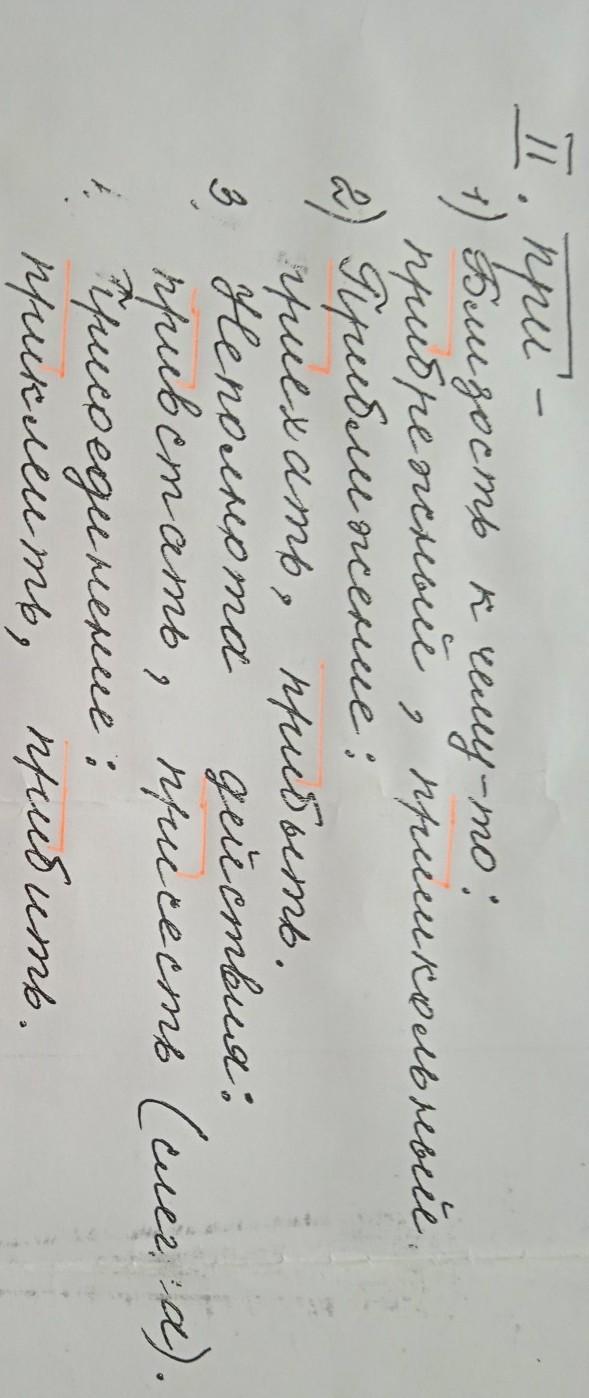 II. При-
1) Близость к чему-то:
прибрежный, пришкольный.
2) Приближение:
приехать, прибыть.
3 Неполнота действия:
привстать, присесть (слег а).
Присоединение:
приклеить, прибить.